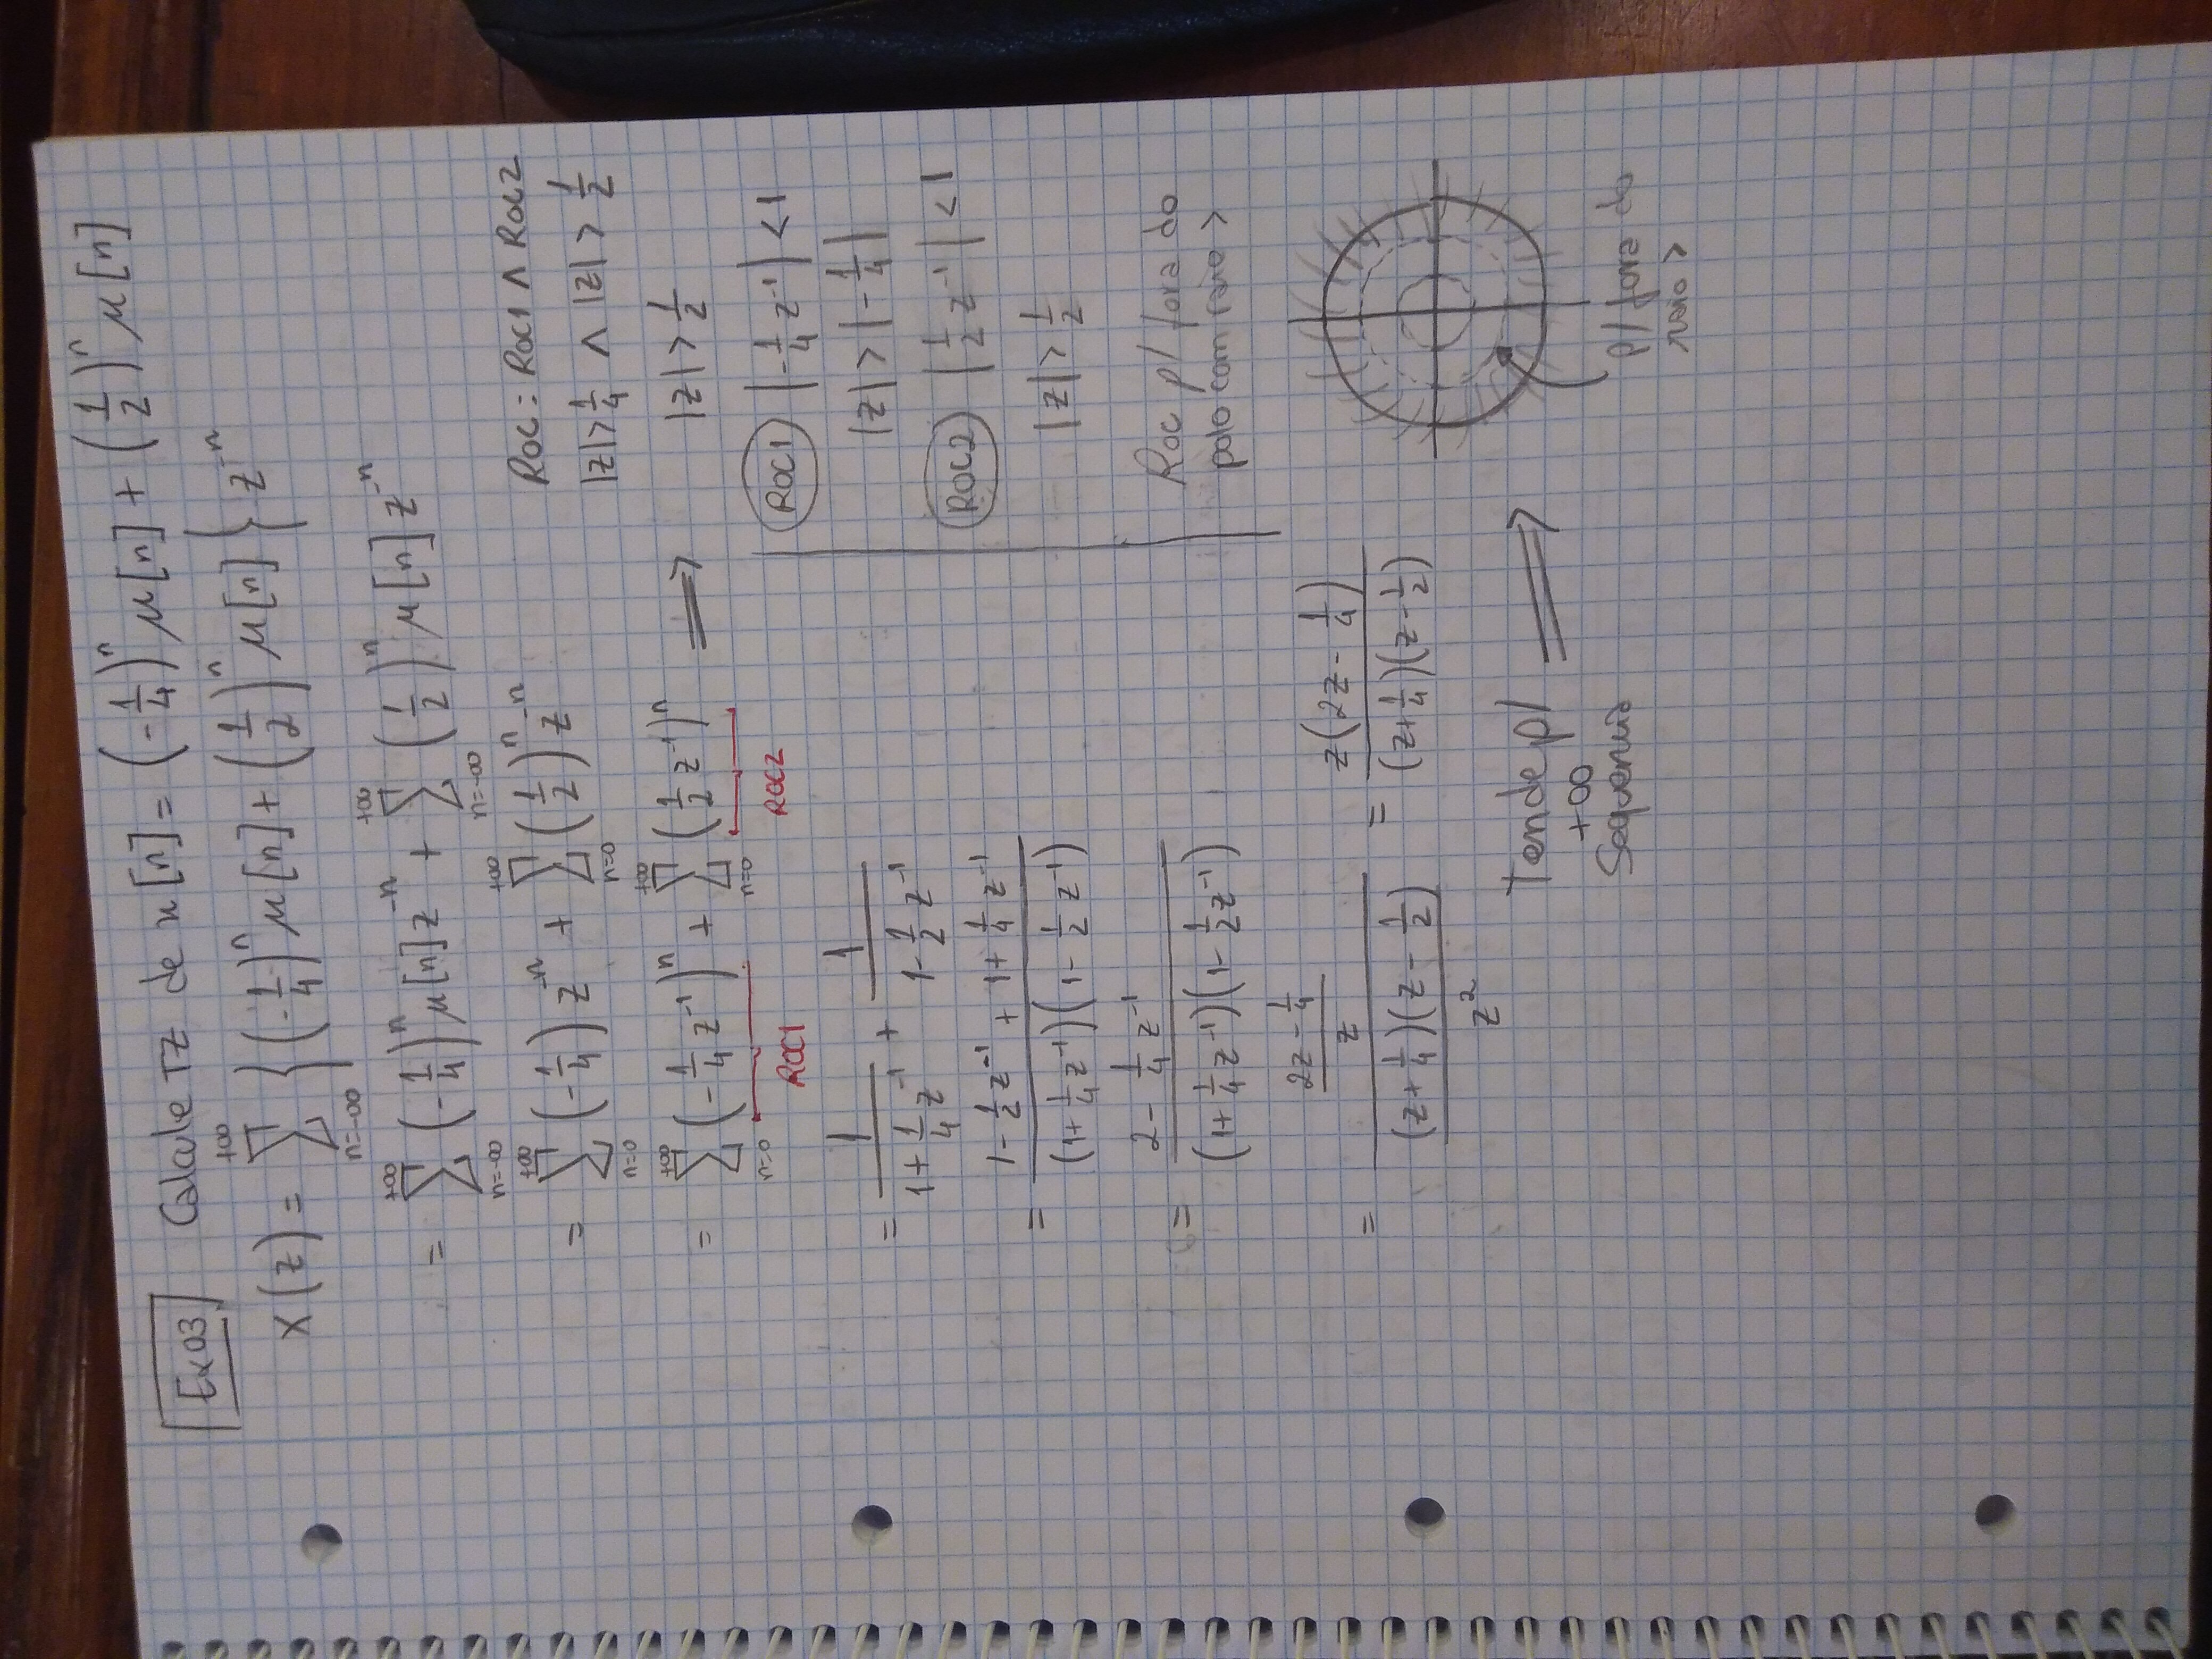 Ex03 Calcule TZ de x[n] = (-1/4)^n μ[n] + (1/2)^n μ[n]
X(z) = ∑_{n=-∞}^{+∞} { (-1/4)^n μ[n] + (1/2)^n μ[n] } z^{-n}
= ∑_{n=-∞}^{+∞} (-1/4)^n μ[n] z^{-n} + ∑_{n=-∞}^{+∞} (1/2)^n μ[n] z^{-n}
= ∑_{n=0}^{+∞} (-1/4) z^{-n} + ∑_{n=0}^{+∞} (1/2)^n z^{-n}
= ∑_{n=0}^{+∞} (-1/4 z^{-1})^n + ∑_{n=0}^{+∞} (1/2 z^{-1})^n ⟹
ROC1 ROC2
= 1/(1+1/4 z^{-1}) + 1/(1-1/2 z^{-1})
= (1-1/2 z^{-1} + 1+1/4 z^{-1})/((1+1/4 z^{-1})(1-1/2 z^{-1}))
= (2-1/4 z^{-1})/((1+1/4 z^{-1})(1-1/2 z^{-1}))
= ((2z-1/4)/z)/(((z+1/4)(z-1/2))/z^2) = z(2z-1/4)/((z+1/4)(z-1/2))
Tende p/ ⟹
+∞
Sequência
ROC: ROC1 ∧ ROC2
|z|>1/4 ∧ |z|>1/2
|z|>1/2
ROC1 |-1/4 z^{-1}| <1
|z|>|-1/4|
ROC2 |1/2 z^{-1}| <1
|z|>1/2
Roc p/ fora do
polo com raio >
p/ fora do
raio >